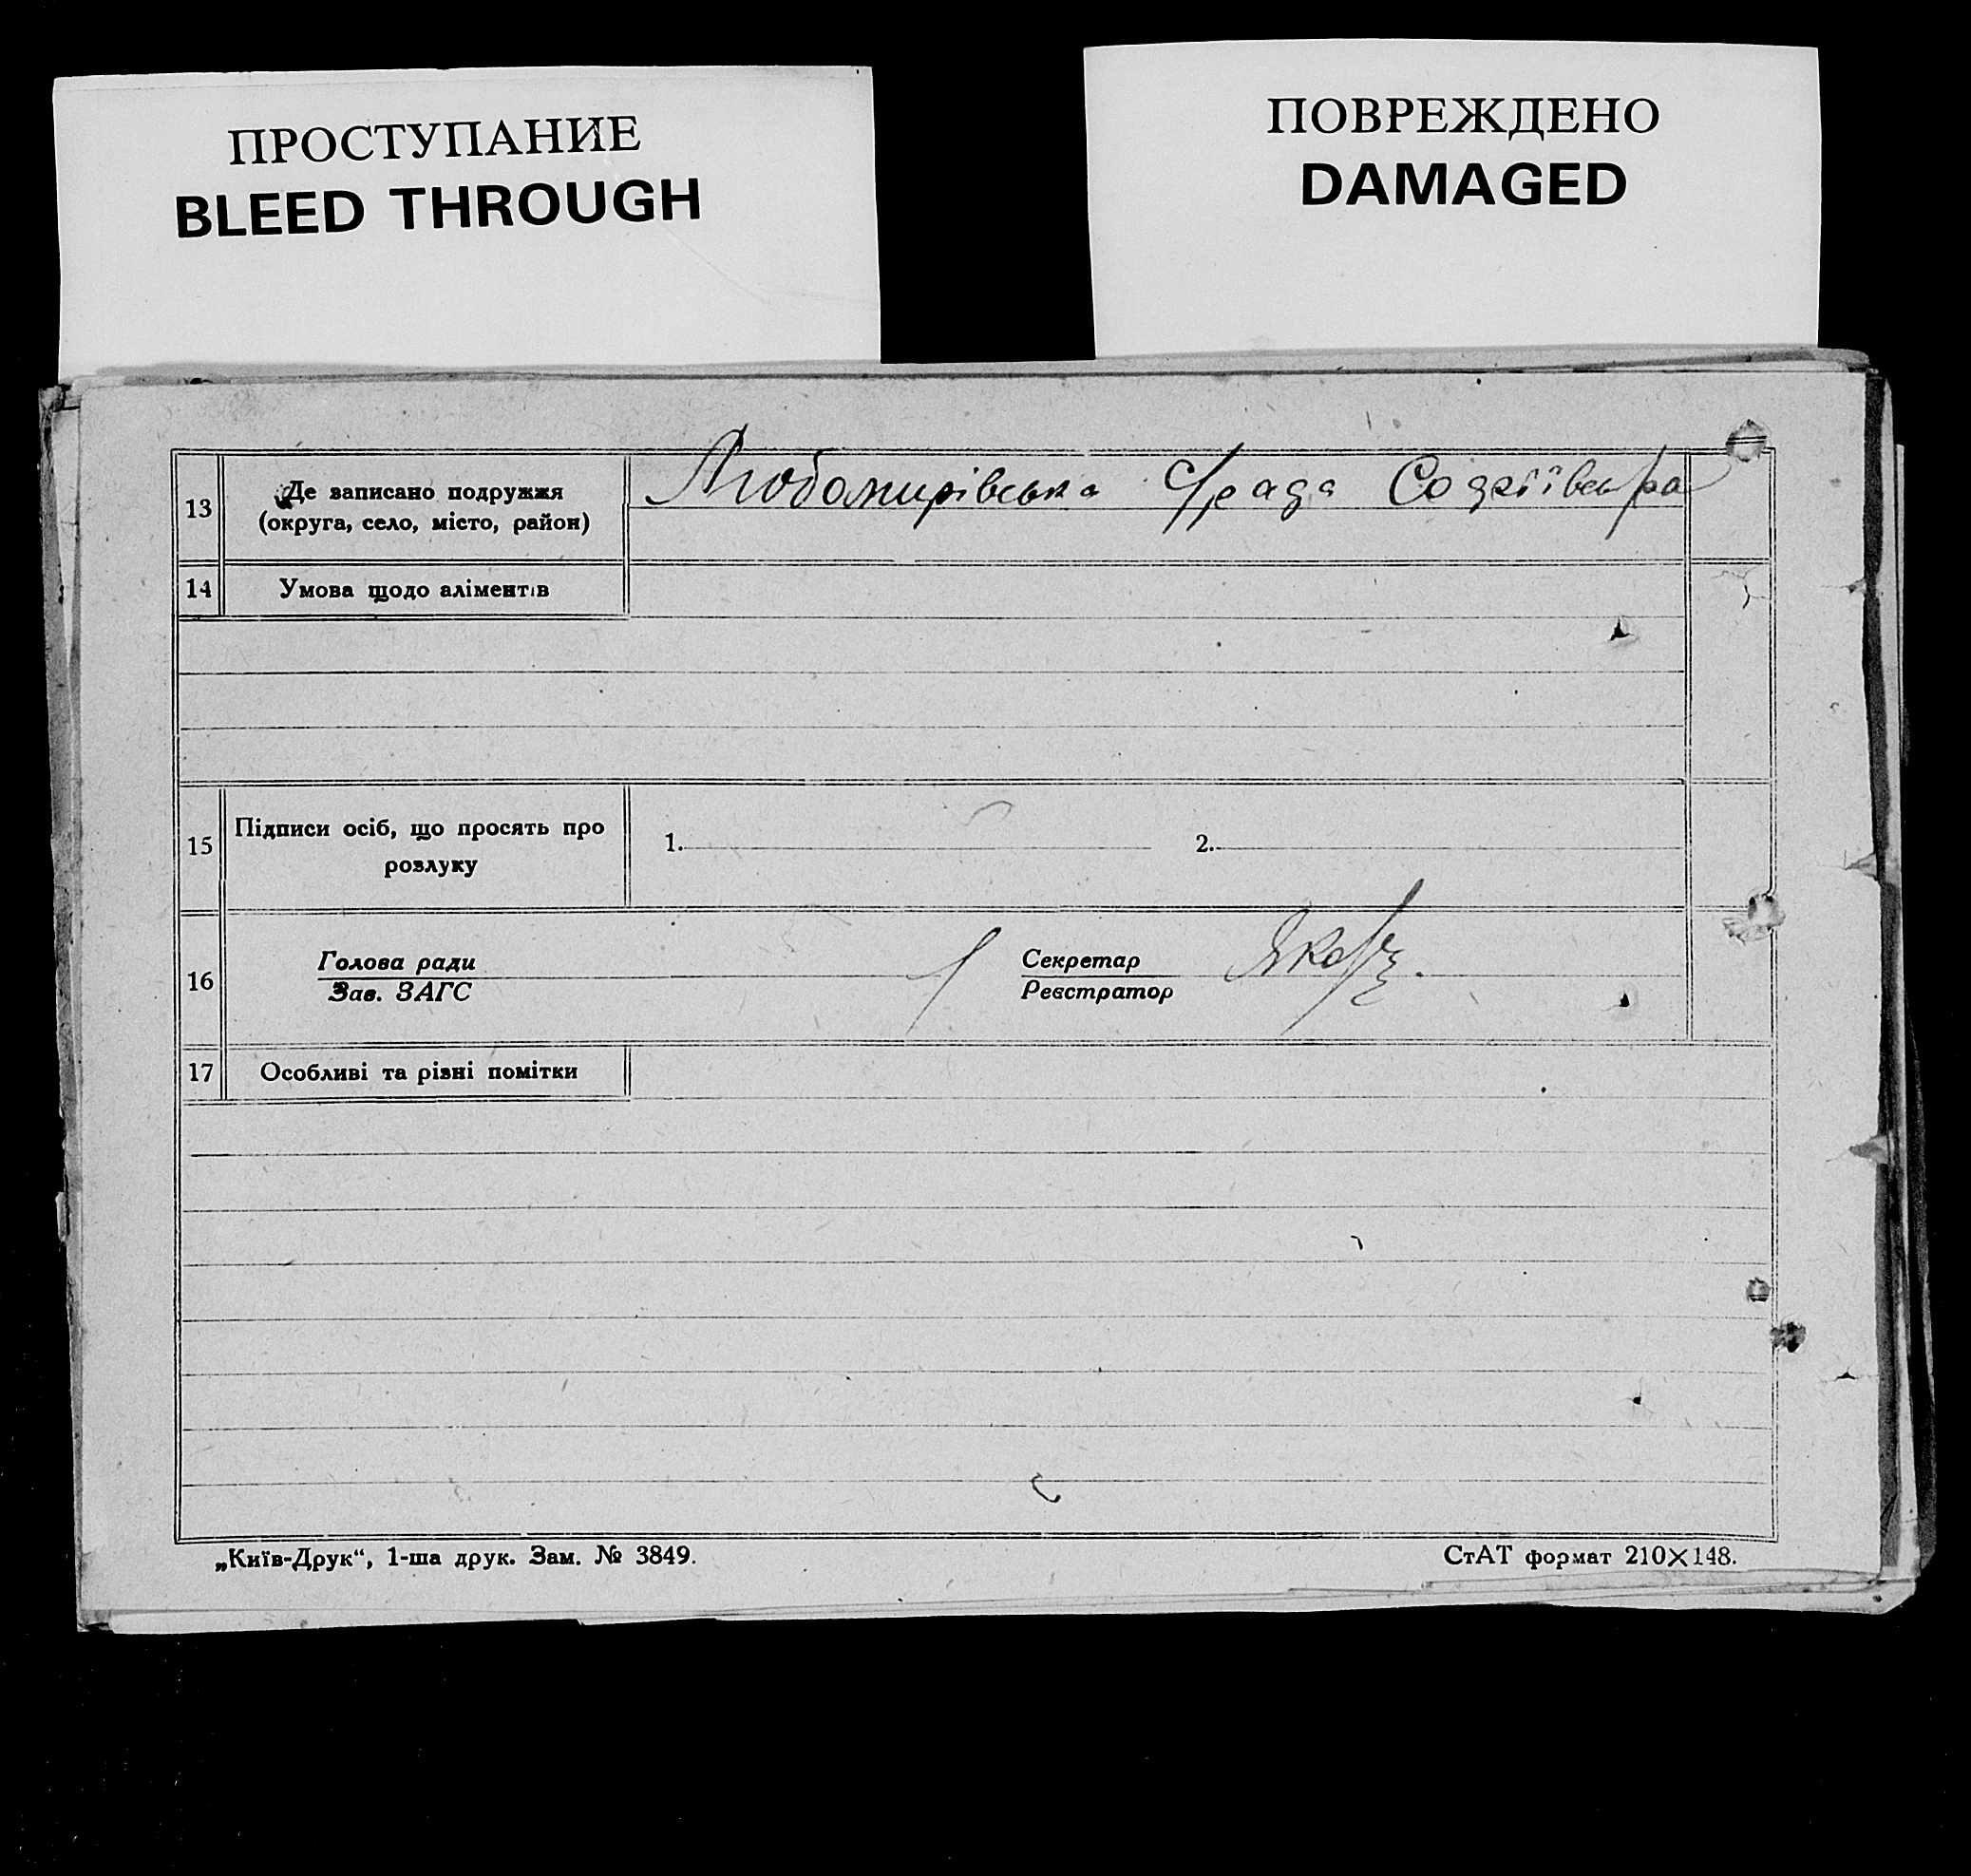 ПРОСТУПАНИЕ
BLEED THROUGH
ПОВРЕЖДЕНО
DAMAGED
13 Де записано подружжя
(округа, село, місто, район)
Любомирівська с/рада
14 Умова щодо аліментів
15 Підписи осіб, що просять про
розлуку
1. 2.
16 Голова ради
Зав. ЗАГС
Секретар
Реєстратор
17 Особливі та різні помітки
„Київ-Друк“, 1-ша друк. Зам. № 3849.
СтАТ формат 210×148.